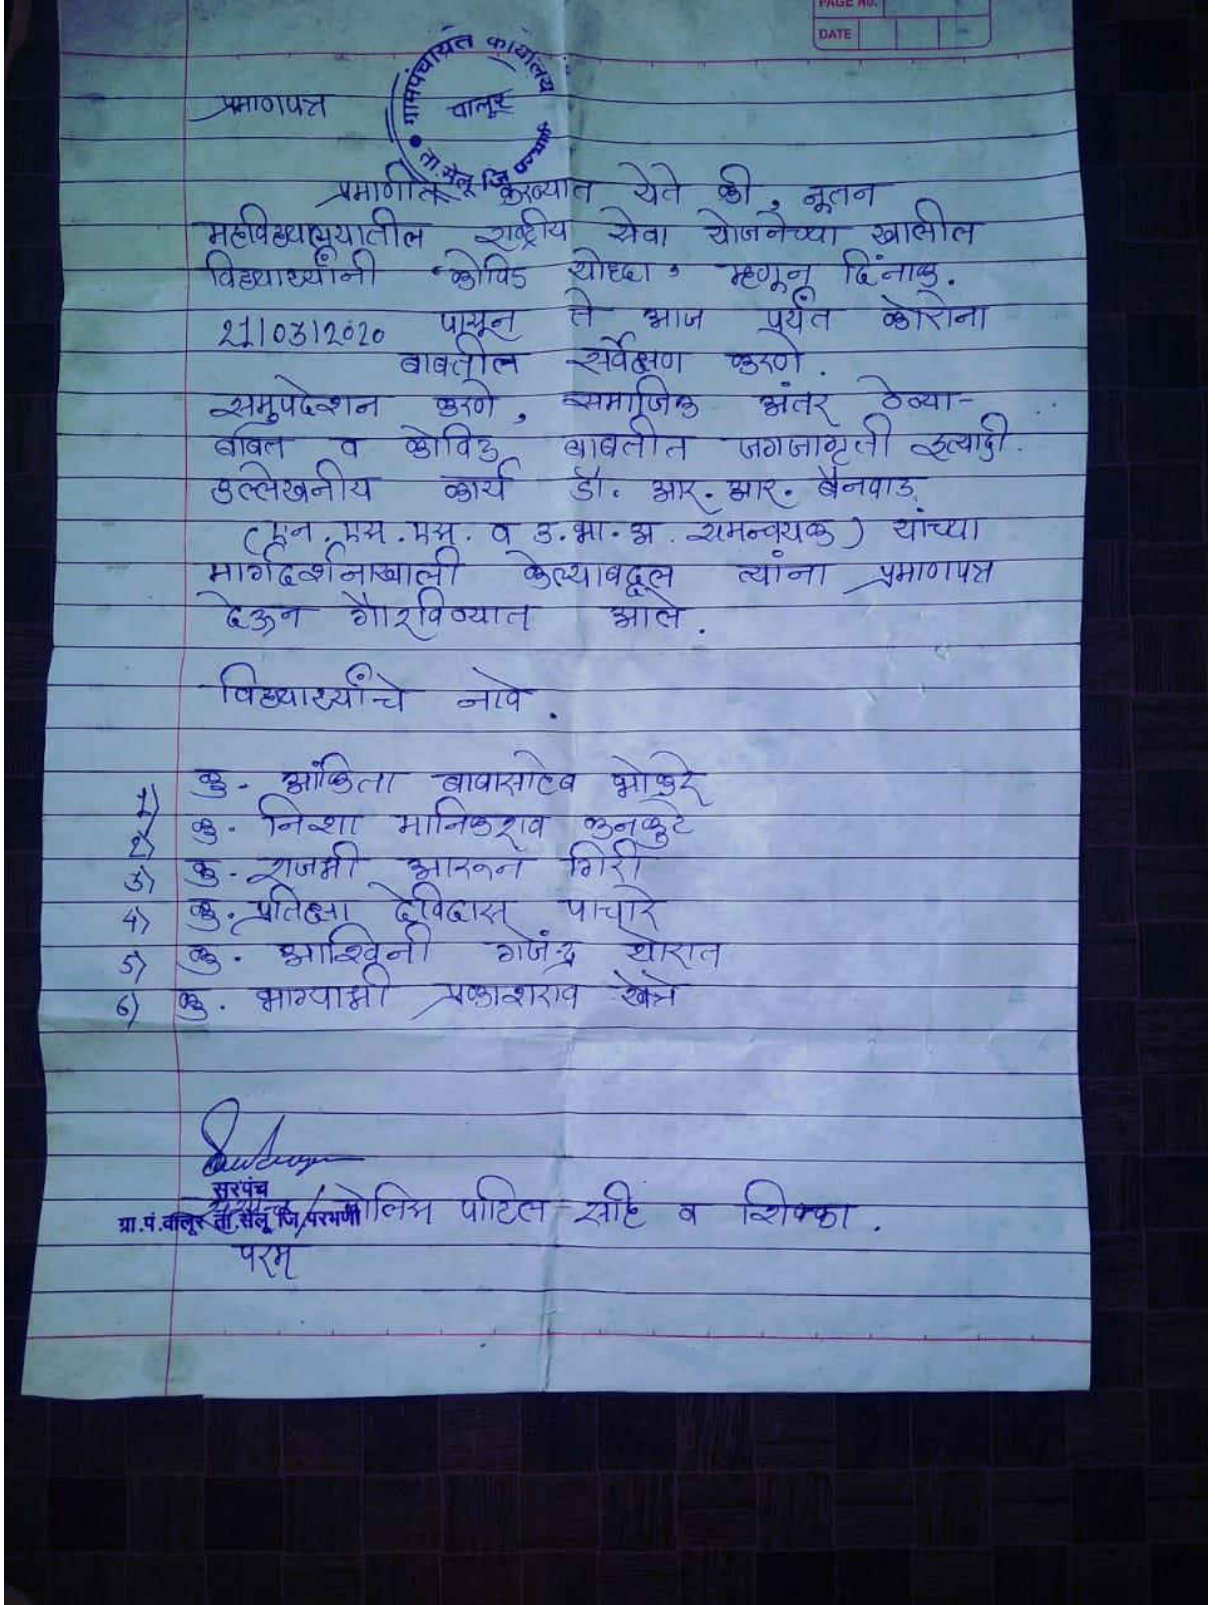 PAGE NO.
DATE
ग्रामपंचायत कार्यालय
वालूर
ता. सेलू जि. परभणी
प्रमाणपत्र
प्रमाणीत करण्यात येते की, नूतन
महाविद्यालयातील राष्ट्रीय सेवा योजनेच्या खालील
विद्यार्थ्यांनी "कोविड योध्दा" म्हणून दिंनाक.
21/03/2020 पासून ते आज पर्यंत कोरोना
बाबतील सर्वेक्षण करणे.
समुपदेशन करणे, समाजिक अंतर ठेव्या-
बाबत व कोविड बाबतीत जगजागृती इत्यादी.
उल्लेखनीय कार्य डॉ. आर. आर. बैनवाड
(एन. एस. एस. व उ. भा. अ. समन्वयक) यांच्या
मार्गदर्शनाखाली केल्याबद्दल त्यांना प्रमाणपत्र
देऊन गौरविण्यात आले.
विद्यार्थ्यांचे नावे.
1) कु. अंकिता बाबासाहेब भोकरे
2) कु. निशा मानिकराव कनकुटे
3) कु. राजश्री आरुन गिरी
4) कु. प्रतिक्षा देविदास पाचारे
5) कु. आश्विनी गजेंद्र थोरात
6) कु. भाग्याश्री प्रकाशराव खेत्रे
सरपंच
ग्रा.पं.वालूर ता.सेलू जि.परभणी
/ पोलिस पाटिल सहि व शिक्का.